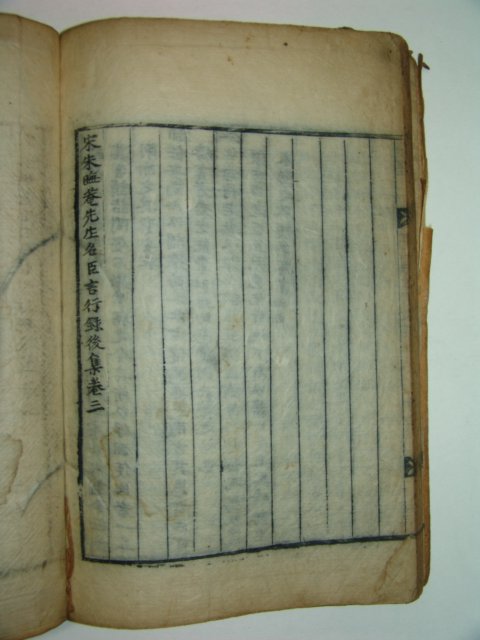 宋朱晦菴先生名臣言行錄後集卷二